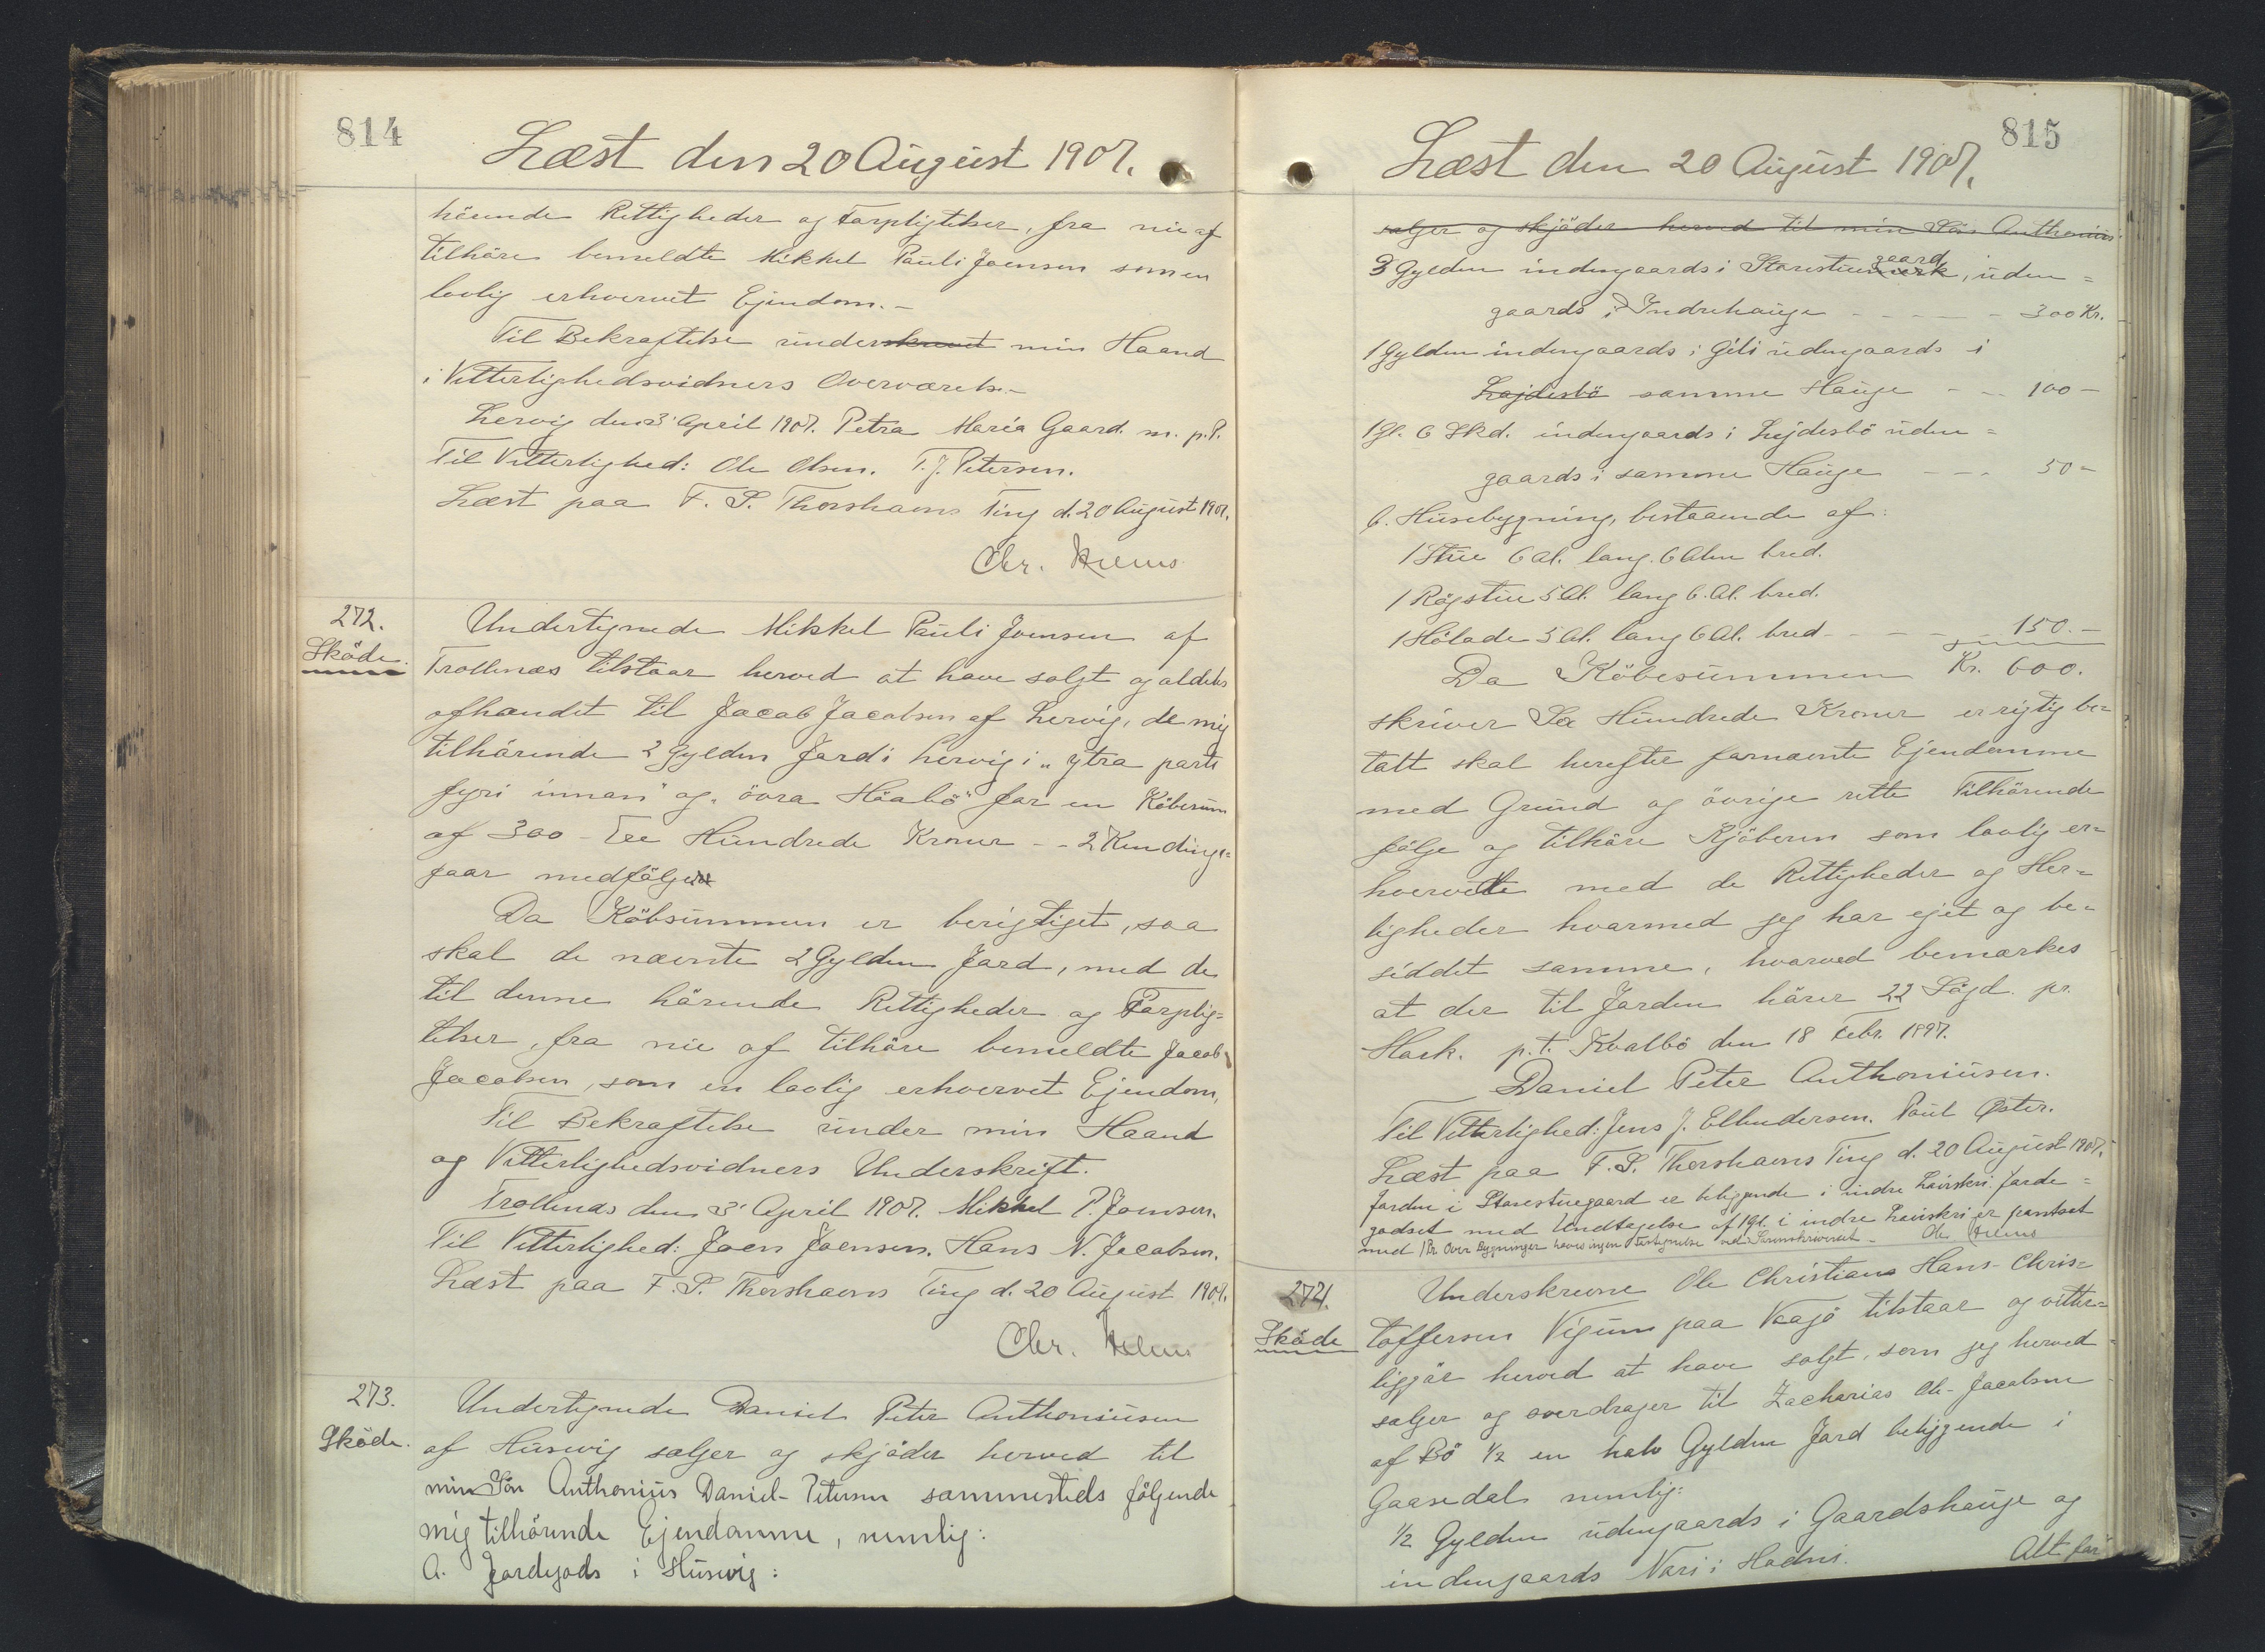 814
Læst den 20 August 1907.
hörende Rettigheder og Forpligtelser, fra nu af
tilhöre bemeldte Mikkel Pauli Joensen som en
lovlig erhvervet Ejendom.-
Til Bekræftelse underskrevet min Haand
i Vitterlighedsvidners Overværelse.-
Lervig den 3' April 1907. Petra Maria Gaard. m. p. P.
Til Vitterlighed: Ole Olsen. T. J. Petersen.
Læst paa F. S. Thorshavns Ting d. 20 August 1907.
Chr. Helms
272.
Sköde.
Undertegnede Mikkel Pauli Joensen af
Trollenæs tilstaar herved at have solgt og aldeles
afhændet til Jacob Jacobsen af Lervig, de mig
tilhörende 2 Gylden Jord i Lervig i "ytra parti
fyri innan" og "övra Höabö" for en Köbesum
af 300 - Tre Hundrede Kroner - - 2 Kendinge=
faar medfölger
Da Köbsummen er berigtiget, saa
skal de nævnte 2 Gylden Jord, med de
til denne hörende Rettigheder og Forplig=
telser, fra nu af tilhöre bemeldte Jacob
Jacobsen, som en lovlig erhvervet Ejendom,
Til Bekræftelse under min Haand
og Vitterlighedsvidners Underskrift.
Trollenæs den 3' April 1907. Mikkel P. Joensen.
Til Vitterlighed: Joen Joensen. Hans N. Jacobsen.
Læst paa F. S. Thorshavns Ting d. 20 August 1907.
Chr. Helms
273.
Sköde.
Undertegnede Daniel Peter Anthoniussen
af Husevig sælger og skjöder herved til
min Sön Anthonius Daniel-Petersen sammesteds fölgende
mig tilhörende Ejendomme, nemlig:
A. Jordegods i Husevig:
815
Læst den 20 August 1907.
sælger og skjöder herved til min Sön Anthonius
3 Gylden indengaards i Storestuemærk gaard, uden=
gaards i Indrehauge - - - - 300 Kr.
1 Gylden indengaards i Gili udengaards i
Lejdesbö samme Hauge - - 100 -
1 Gl. 6 Skd. indengaards i Lejdesbö uden=
gaards i samme Hauge - - - 50 -
b. Husebygning, bestaaende af:
1 Stue 6 Al. lang. 6 Alen bred.
1 Rögstue 5 Al. lang 6. Al. bred.
1 Hölade 5 Al. lang 6 Al. bred - - - - 150.-
Da Köbesummen Kr. 600.
skriver Sex Hundrede Kroner er rigtig be=
talt skal herefter fornævnte Ejendomme
med Grund og övrige rette Tilhörende
fölge og tilhöre Kjöberen som lovlig er=
hvervede med de Rettigheder og Her=
ligheder hvormed jeg har ejet og be=
siddet samme, hvorved bemærkes
at der til Jorden hörer 22 Sögd. pr.
Mark. p. t. Kvalbö den 18 Febr. 1897.
Daniel Peter Anthoniusen.
Til Vitterlighed: Jens J. Ellendersen. Poul Øster.
Læst paa F. S. Thorshavns Ting d. 20 August 1907.
Jorden i Storestuegaard er beliggende i indre Jorde=
godset med Undtagelse af 1 Gl. i indre er pantsat
med Over Bygninger haves ingen ved Sorenskriveriet - Chr. Helms
274.
Sköde
Underskrevne Ole Christian Hans-Chris=
toffersen Vigum paa Vaagö tilstaar og vitter=
liggör herved at have solgt, som jeg herved
sælger og overdrager til Zacharias Ole-Jacobsen
af Bö 1/2 en halv Gylden Jord beliggende i
Gaasedal nemlig:
1/2 Gylden udengaards i Gaardshauge og
indengaards Nori i Hodni. Alt for